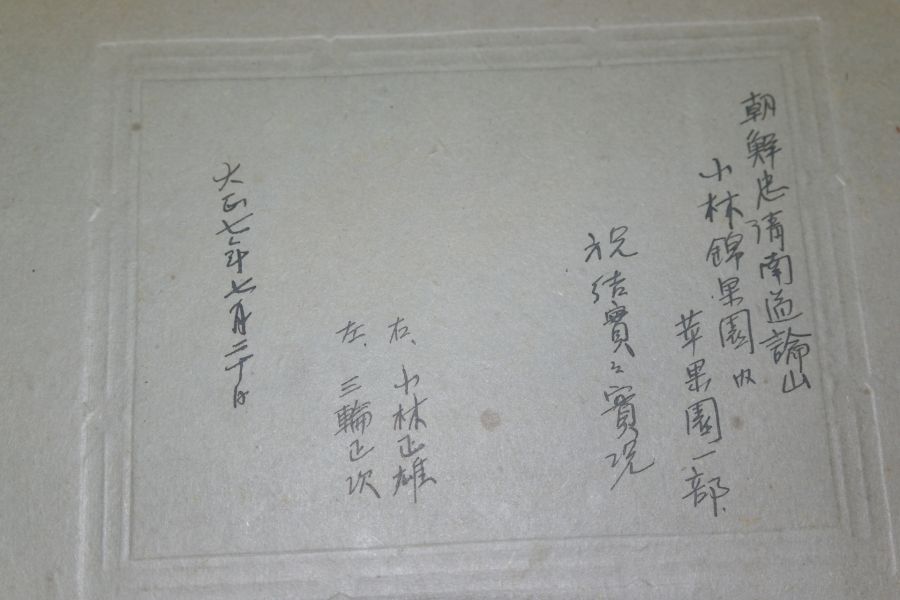 朝鮮忠淸南道論山
小林錦果園内
苹果園一部
祝結實之實況
右、小林正雄
左、三輪正次
大正七年七月二十日